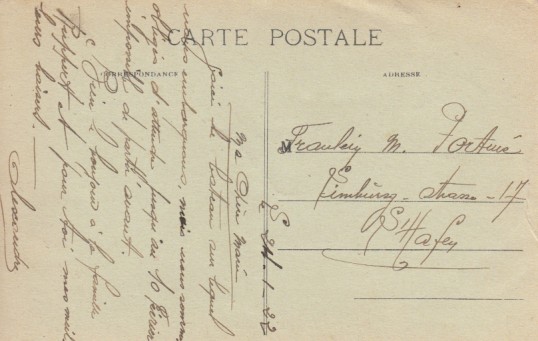 CARTE POSTALE
CORRESPONDANCE
ADRESSE
Le 24-1-22
Ma chère Marie
Voici le bateau sur lequel
nous embarquons, mais nous sommes
obligés d'attendre jusqu'au 10 février
impossible de partir avant.
toujours à la famille
Ruppert et pour toi mes meil
leurs baisers. —
Alexandre
M
Fraulein M. Fortuné
Limburg - strasse - 17
L'Hafen